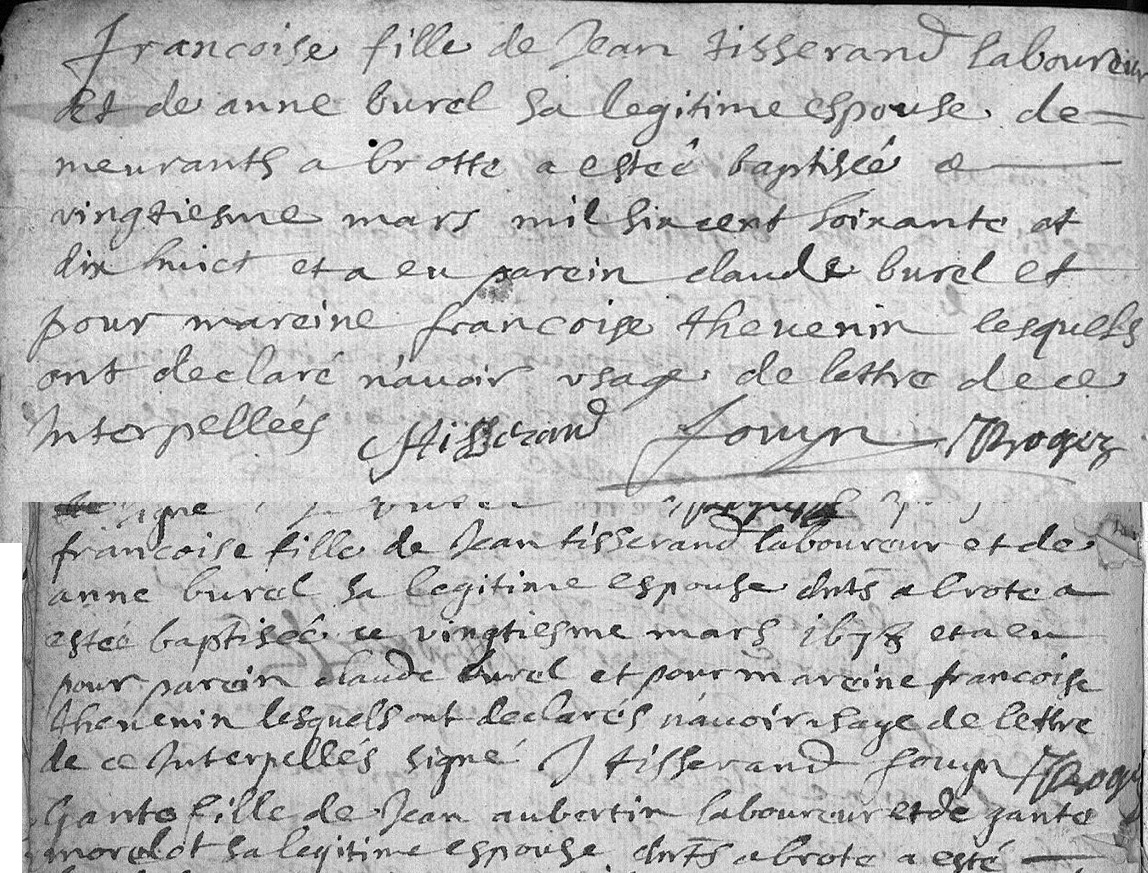 francoise fille de Jean tisserand laboureur
et de anne burel sa legitime espouse de=
meurants a brotte a esteé baptiséé ce
vingtiesme mars mil six cent soixante et
dix huict et a eu parein claude burel et
pour mareine francoise thevenin lesquels
ont declaré n'avoir usage de lettre de ce
Interpellés Jtisserand Jouyn JRoger
signe
francoise fille de Jean tisserand laboureur et de
anne burel sa legitime espouse dnts a brote a
esteé baptiséé ce vingtiesme mars 1678 et a eu
pour parein claude burel et pour mareine francoise
thevenin lesquels ont declarés n'avoir usage de lettre
de ce Interpellés signé J tisserand Jouyn JRoger
Gante fille de Jean aubertin laboureur et de gante
morelot sa legitime espouse dnts a brote a esté